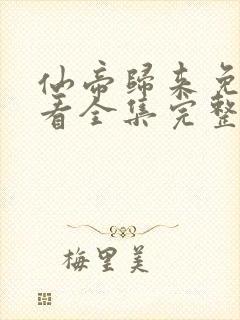 仙帝歸来免
看全集完整
梅里美